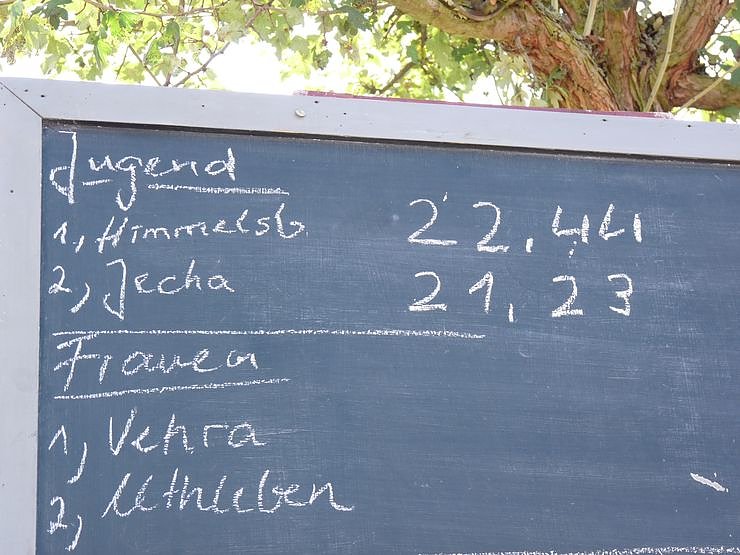 Jugend
1, Himmelsb. 22,44
2, Jecha 21,23
Frauen
1, Vehra
2, Uthleben